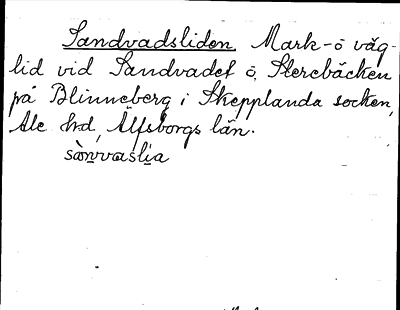 Sandvadsliden Mark- o väg-
lid vid Sandvadet o. Sterebäcken
på Blinneberg i Skepplanda socken,
Ale hd, Älfsborgs län.